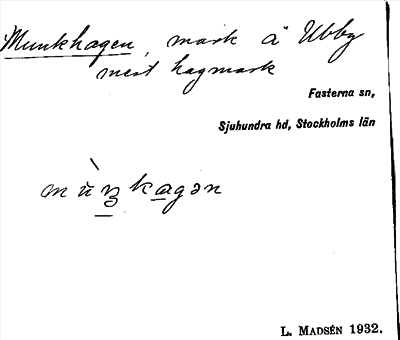 Munkhagen, mark å Ubby
mest hagmark
Fasterna sn,
Sjuhundra hd, Stockholms län
L. MADSÉN 1932.